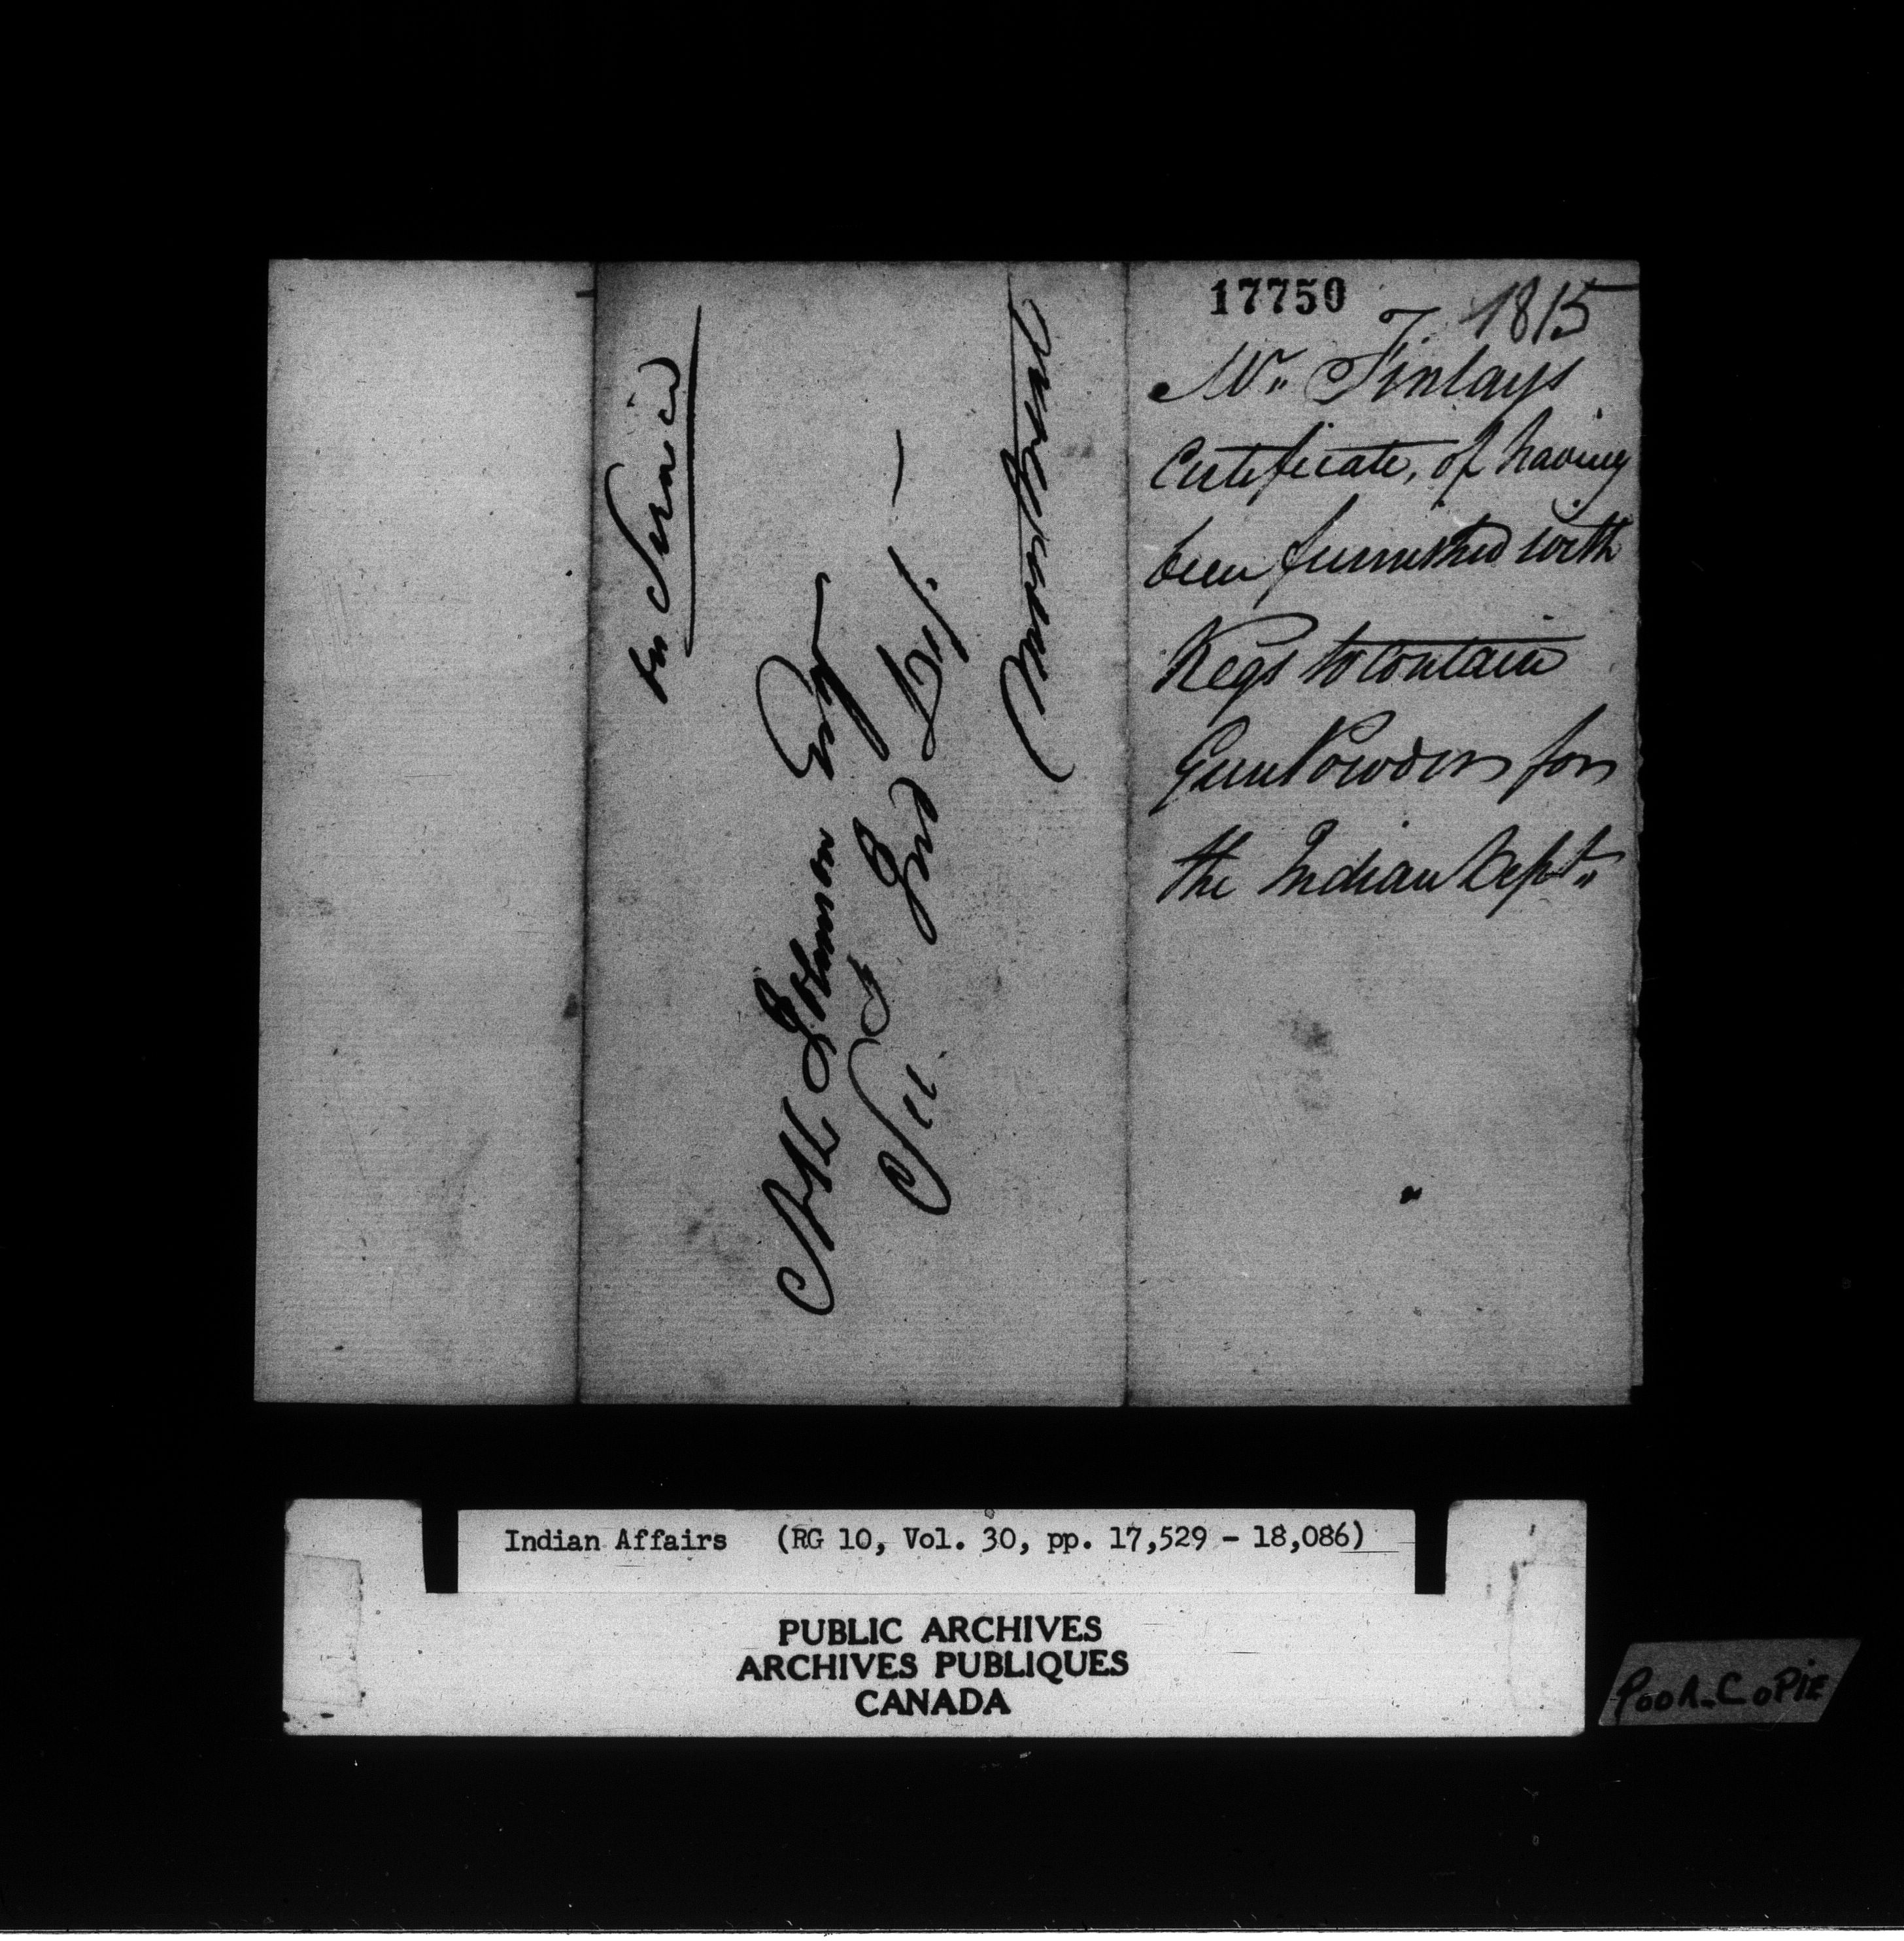 17750
1815
Mr. Finlays
Certificate, of having
been furnished with
Kegs to contain
Gun Powder for
the Indian Dept.
On Service
Johnson Esqr
Sec Ind Dept. —
Montreal
Indian Affairs (RG 10, Vol. 30, pp. 17,529 - 18,086)
PUBLIC ARCHIVES
ARCHIVES PUBLIQUES
CANADA
POOR-COPIE